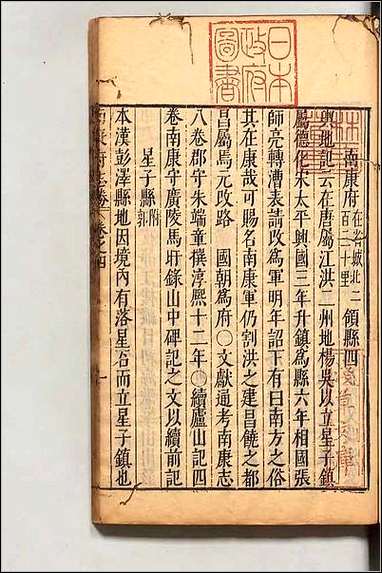 日本
政府
圖書
南康府 在省城北二百二十里 領縣四
輿地記云在唐屬江洪二州地楊吳以立星子鎮
屬德化宋太平興國三年升鎮爲縣六年相國張
師亮轉漕表請改爲軍明年詔下有曰南方之俗
其在康哉可賜名南康軍仍割洪之建昌饒之都
昌屬焉元改路 國朝爲府〇文獻通考南康志
八卷郡守朱端章撰淳熙十二年〇續廬山記四
卷南康守廣陵馬玕錄山中碑記之文以續前記
星子縣 附郭
本漢彭澤縣地因境內有落星石而立星子鎮也